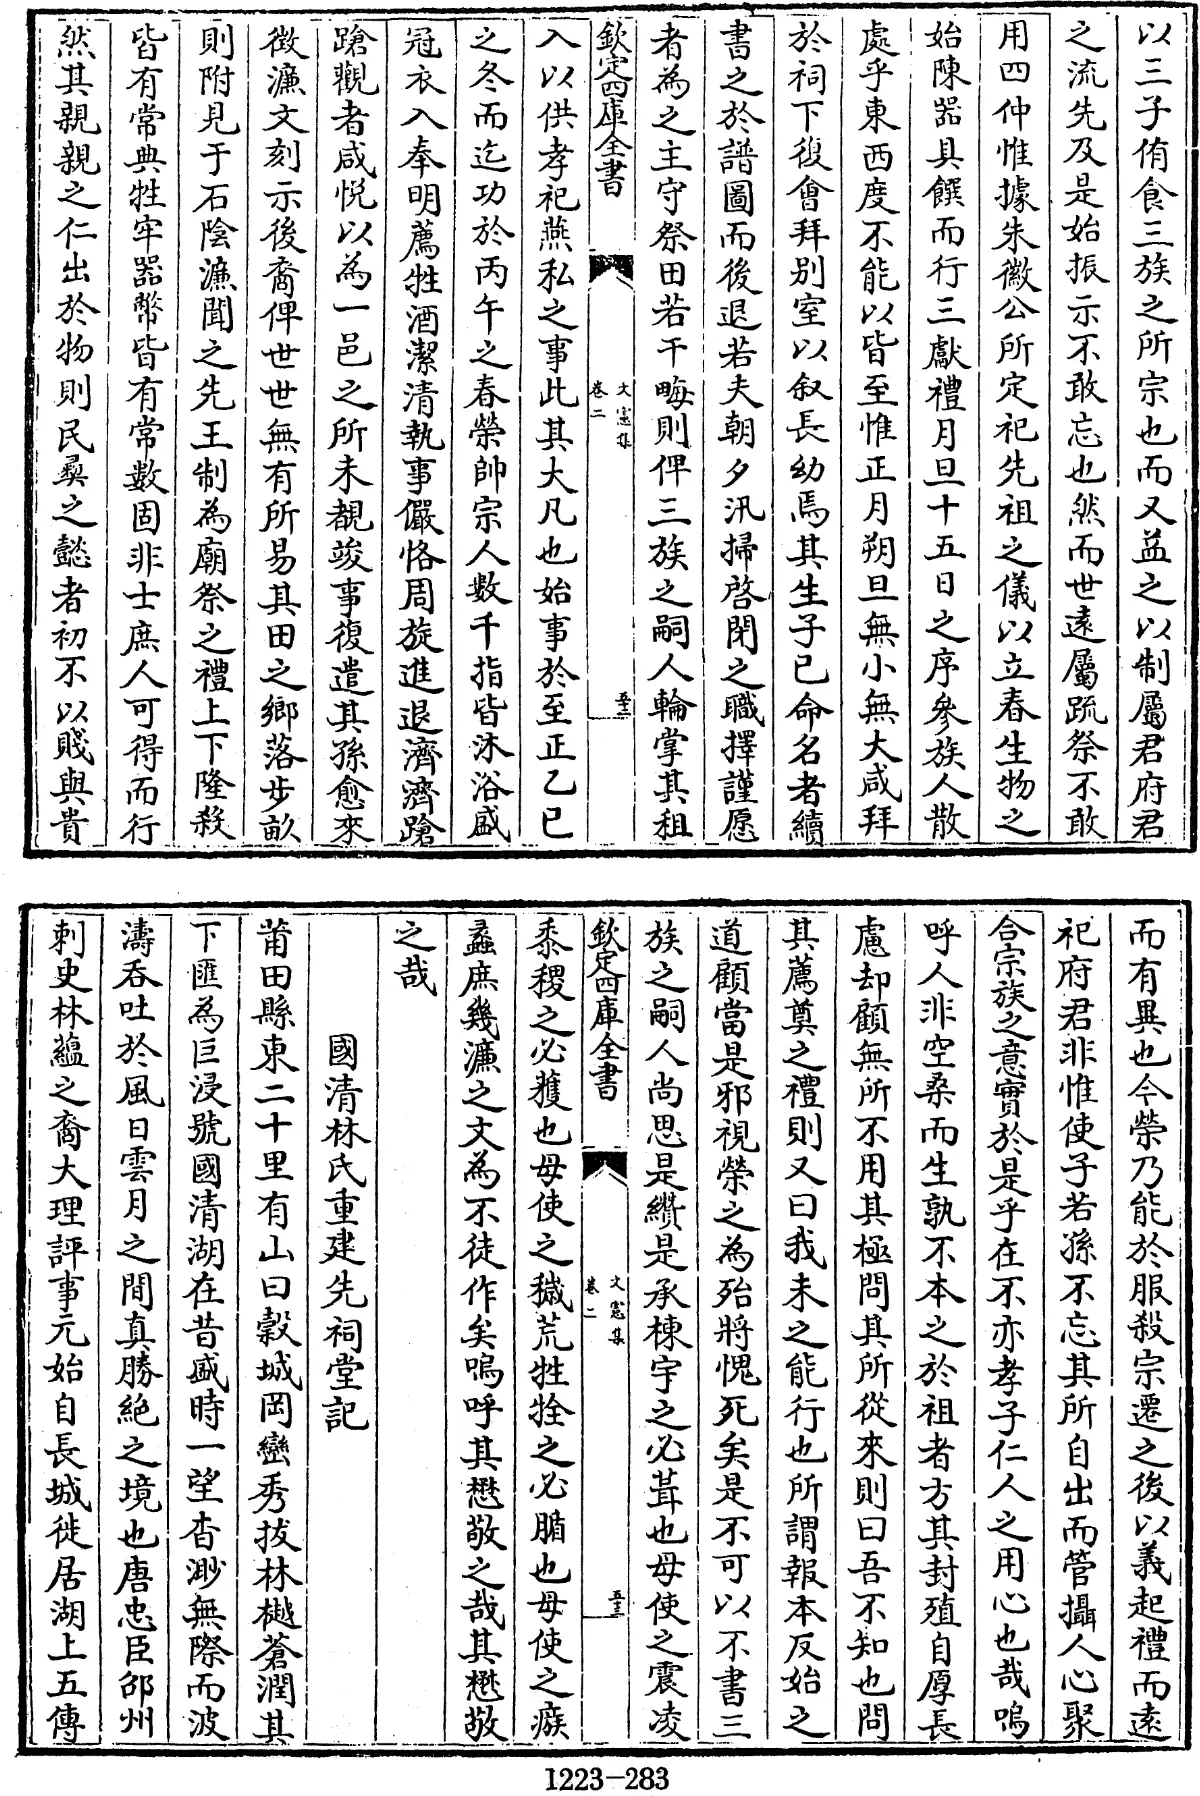 以三子侑食三族之所宗也而又益之以制屬君府君
之流先及是始振示不敢忘也然而世遠屬疏祭不敢
用四仲惟據朱徽公所定祀先祖之儀以立春生物之
始陳器具饌而行三獻禮月旦十五日之序參族人散
處乎東西度不能以皆至惟正月朔旦無小無大咸拜
於祠下復會拜别室以叙長幼焉其生子已命名者續
書之於譜圖而後退若夫朝夕汛掃啓閉之職擇謹愿
者為之主守祭田若干畮則俾三族之嗣人輪掌其租
欽定四庫全書
文憲集
卷二
五十二
入以供孝祀燕私之事此其大凡也始事於至正乙巳
之冬而迄功於丙午之春榮帥宗人數千指皆沐浴盛
冠衣入奉明薦牲酒潔清執事儼恪周旋進退濟濟蹌
蹌觀者咸悦以為一邑之所未覩竣事復遣其孫愈來
徵濂文刻示後裔俾世世無有所易其田之鄉落步畝
則附見于石陰濂聞之先王制為廟祭之禮上下隆殺
皆有常典牲牢器幣皆有常數固非士庶人可得而行
然其親親之仁出於物則民彝之懿者初不以賤與貴
而有異也今榮乃能於服殺宗遷之後以義起禮而遠
祀府君非惟使子若孫不忘其所自出而管攝人心聚
合宗族之意實於是乎在不亦孝子仁人之用心也哉嗚
呼人非空桑而生孰不本之於祖者方其封殖自厚長
慮却顧無所不用其極問其所從來則曰吾不知也問
其薦奠之禮則又曰我未之能行也所謂報本反始之
道顧當是邪視榮之為殆將愧死矣是不可以不書三
族之嗣人尚思是纘是承棟宇之必葺也毋使之震凌
欽定四庫全書
文憲集
卷二
五十三
黍稷之必蓷也毋使之穢荒牲拴之必腯也毋使之瘯
蠡庶幾濂之文為不徒作矣嗚呼其懋敬之哉其懋敬
之哉
國清林氏重建先祠堂記
莆田縣東二十里有山曰穀城岡巒秀拔林樾蒼潤其
下匯為巨浸號國清湖在昔盛時一望杳渺無際而波
濤呑吐於風日雲月之間真勝絶之境也唐忠臣邵州
刺史林藴之裔大理評事元始自長城徙居湖上五傳
1223-283